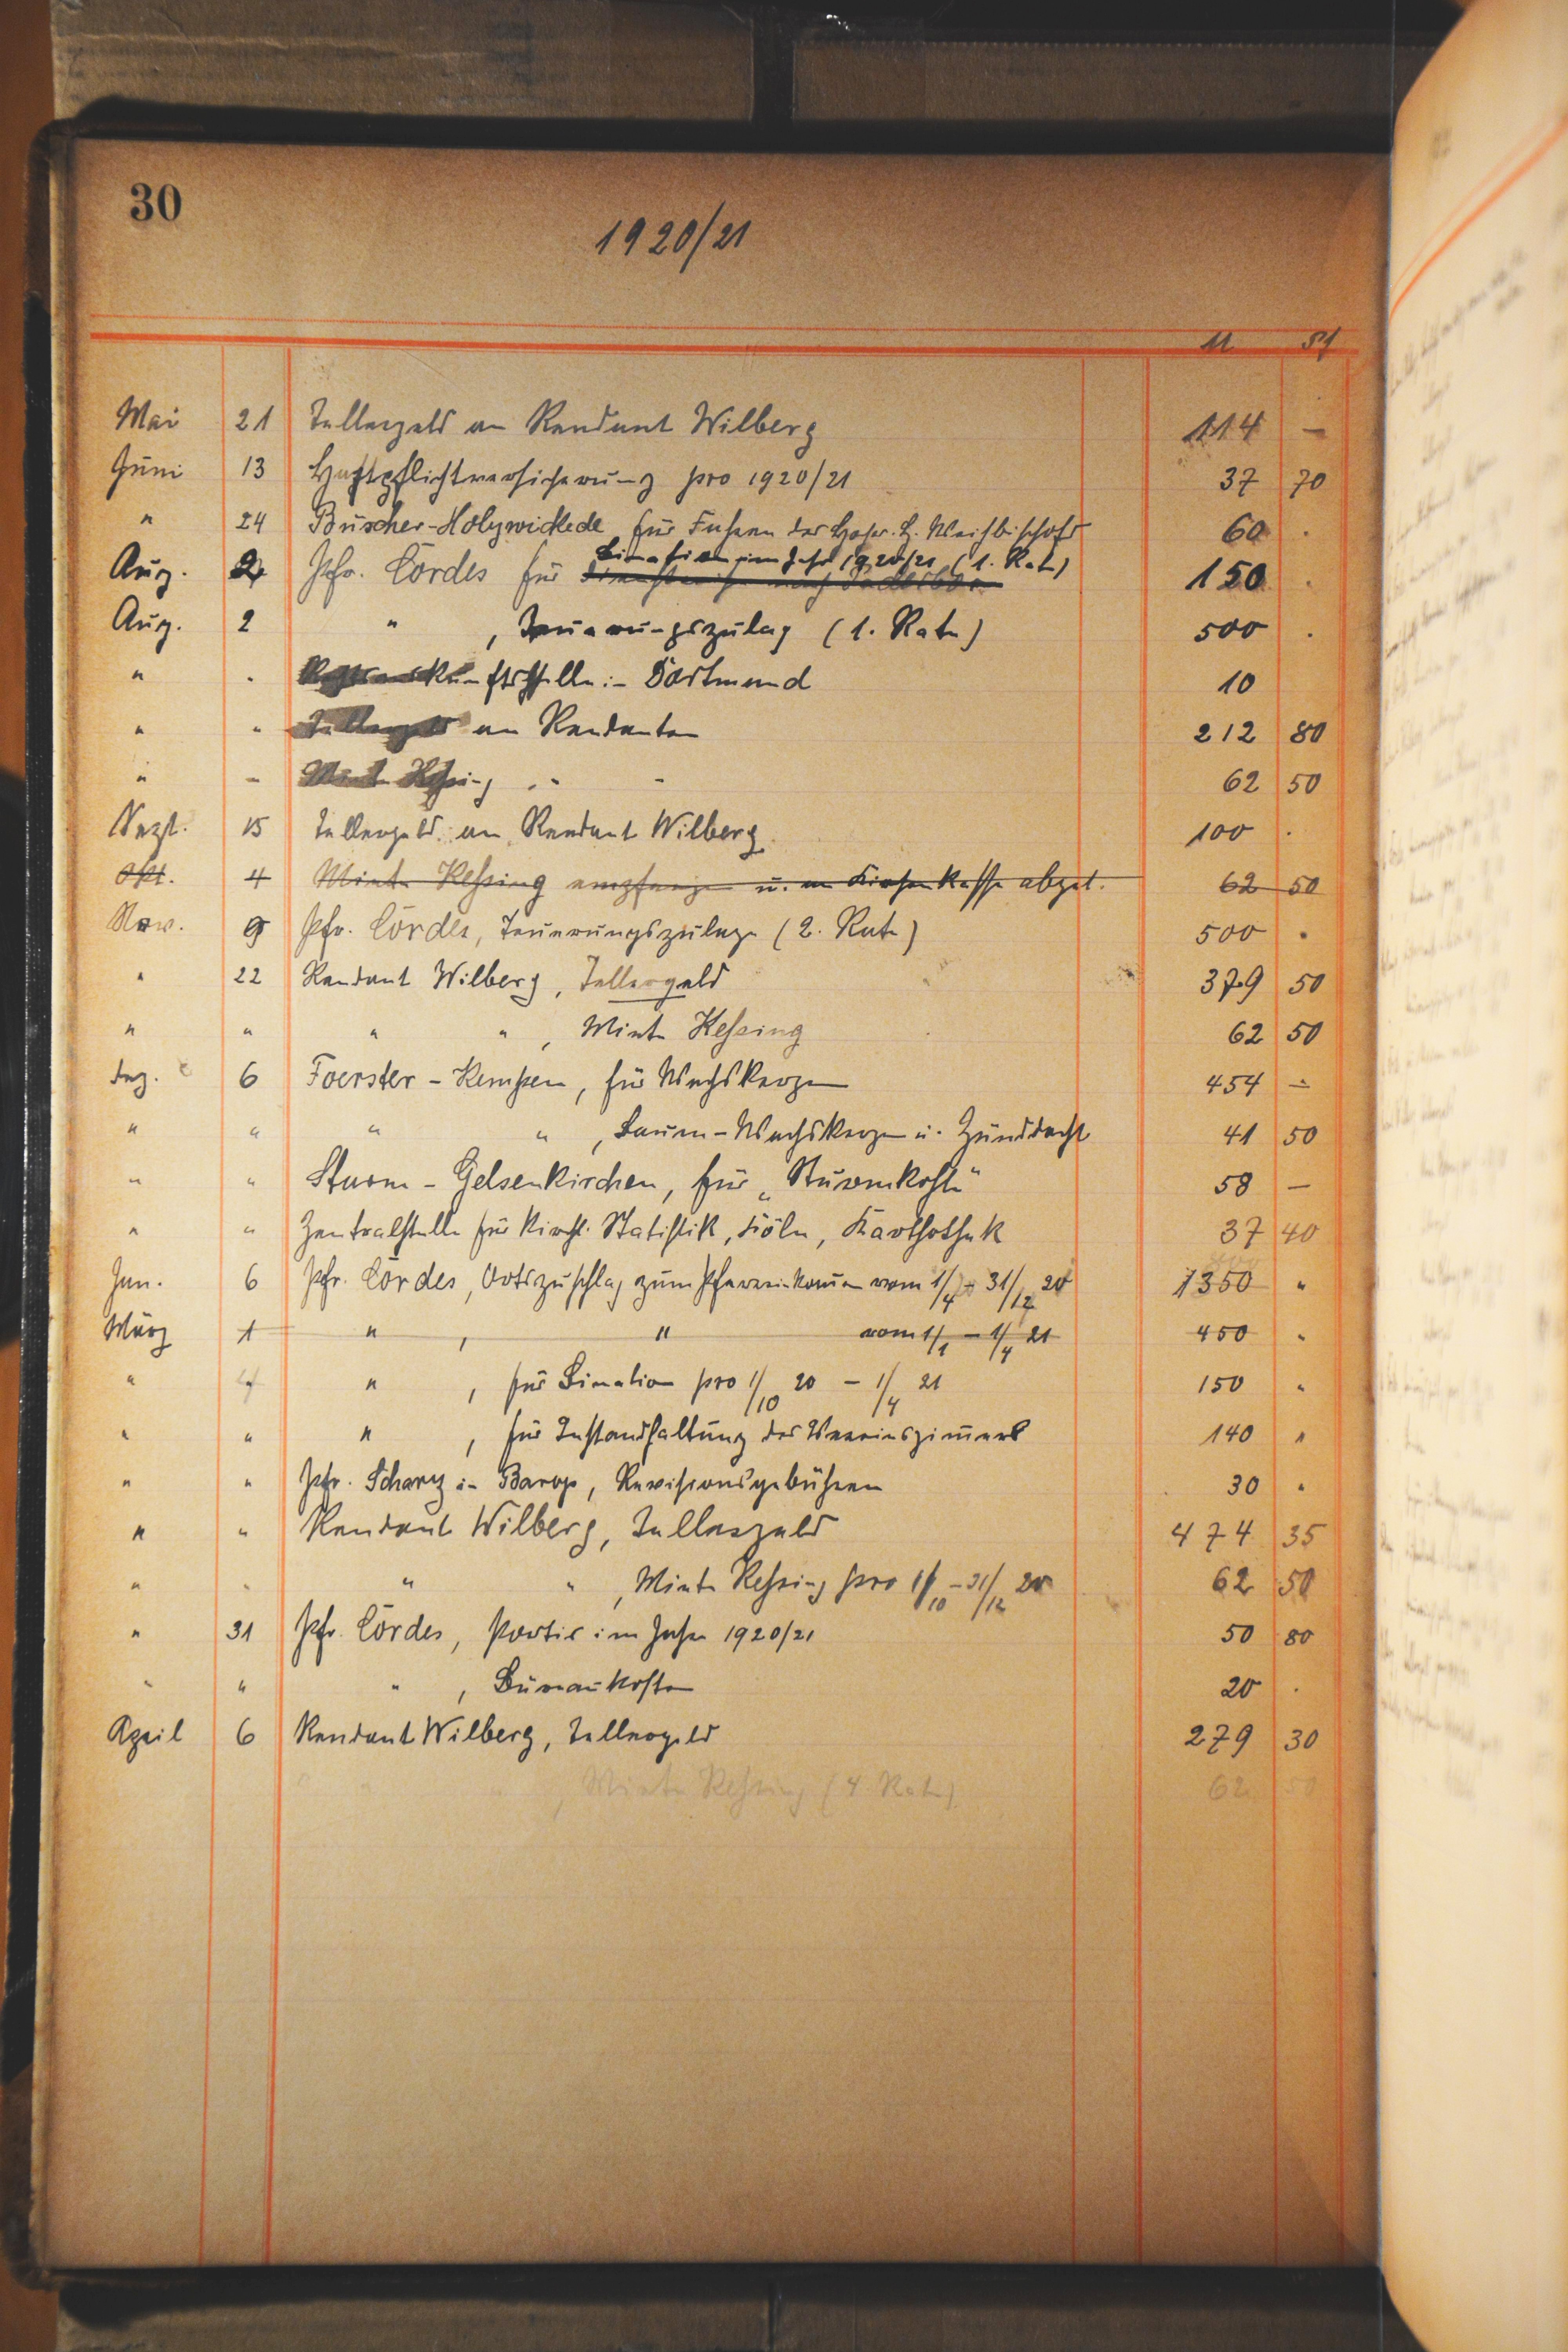 30
1920/21
M Pf
Mai 21 Tellergeld an Rendant Wilberg 114 –
Juni 13 Haftpflichtversicherung pro 1920/21 37 70
" 24 Büscher-Holzwickede für Fuhren des Hochw. H. Weihbischofs 60 .
Binationen im Jahr 1920/21 (1. Rat)
Aug. 2 Pfr. Cördes für 150 .
Aug. 2 " , Teuerungszulag (1. Rate) 500 .
" . Dortmund 10
" " Tellergeld an Rendanten 212 80
" – Miete Kessing " – 62 50
Sept. 15 Tellergeld an Rendant Wilberg 100 .
Okt. 4 Miete Kessing empfangen u. an Kirchenkasse abget. 62 50
Nov. 9 Pfr. Cördes, Teuerungszulage (2. Rate) 500 .
" 22 Rendant Wilberg, Tellergeld 379 50
" " " " , Miete Kessing 62 50
Dez. 6 Foerster-Kempen, für Wachskerzen 454 –
" " " " , Baum-Wachskerzen u. Zünddocht 41 50
" " Sturm-Gelsenkirchen, für 58 –
" " Zentralstelle für kirchl. Statistik, Köln, Karthothek 37 40
Jan. 6 Pfr. Cördes, Ortszuschlag zum Pfarreinkommen vom 1/4 – 31/12 20 1350 "
März 1 " , " vom 1/1 – 1/4 21 450 "
" 4 " , für Bination pro 1/10 20 – 1/4 21 150 "
" " " , für Instandhaltung des Vereinszimmers 140 "
" " Pfr. Scharz in Barop, Revisionsgebühren 30 "
" " Rendant Wilberg, Tellergeld 474 35
" " " " , Miete Kessing pro 1/10 – 31/12 20 62 50
" 31 Pfr. Cördes, Portis im Jahre 1920/21 50 80
" " " , Bureaukosten 20 .
April 6 Rendant Wilberg, Tellergeld 279 30
" " , Miete Kessing (4. Rate) 62 50